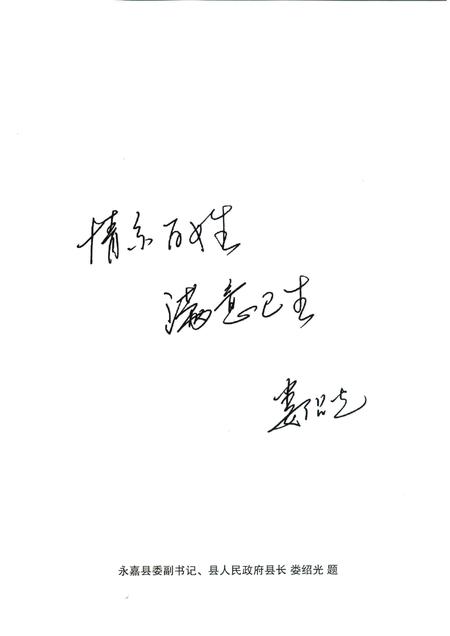 情系百姓
满意巳生
娄绍光
永嘉县委副书记、县人民政府县长 娄绍光 题